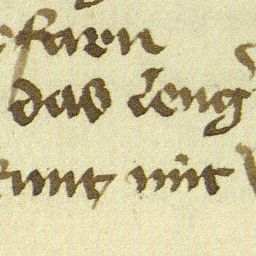 efarn
das leng
unt mit